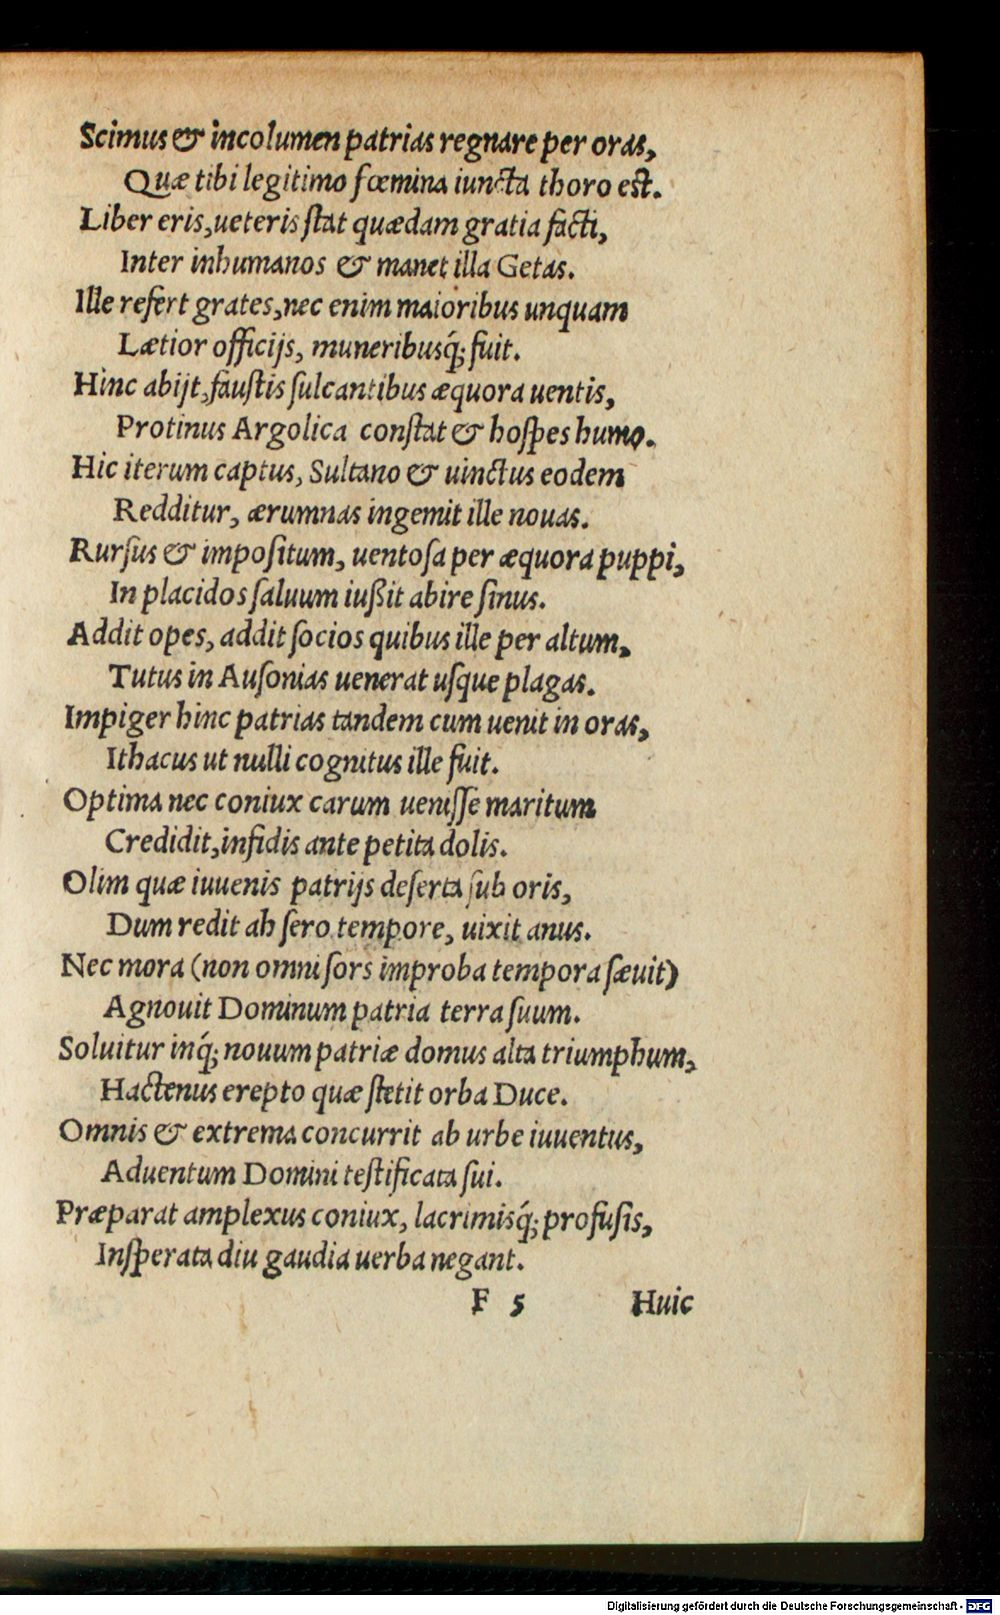 Scimus & incolumen patrias regnare per oras,
Quæ tibi legitimo fœmina iuncta thoro est.
Liber eris, ueteris ſtat quædam gratia facti,
Inter inhumanos & manet illa Getas.
Ille refert grates, nec enim maioribus unquam
Lætior officijs, muneribusq́; fuit.
Hinc abijt, fauſtis ſulcantibus æquora uentis,
Protinus Argolica conſtat & hoſpes humo.
Hic iterum captus, Sultano & uinctus eodem
Redditur, ærumnas ingemit ille nouas.
Rurſus & impoſitum, uentoſa per æquora puppi,
In placidos ſaluum iußit abire ſinus.
Addit opes, addit ſocios quibus ille per altum,
Tutus in Auſonias uenerat uſque plagas.
Impiger hinc patrias tandem cum uenit in oras,
Ithacus ut nulli cognitus ille fuit.
Optima nec coniux carum ueniſſe maritum
Credidit, infidis ante petita dolis.
Olim quæ iuuenis patrijs deſerta ſub oris,
Dum redit ah ſero tempore, uixit anus.
Nec mora (non omni ſors improba tempora ſæuit)
Agnouit Dominum patria terra ſuum.
Soluitur inq́; nouum patriæ domus alta triumphum,
Hactenus erepto quæ ſtetit orba Duce.
Omnis & extrema concurrit ab urbe iuuentus,
Aduentum Domini teſtificata ſui.
Præparat amplexus coniux, lacrimisq́; profuſis,
Inſperata diu gaudia uerba negant.
F 5 Huic
Digitalisierung gefördert durch die Deutsche Forschungsgemeinschaft - DFG